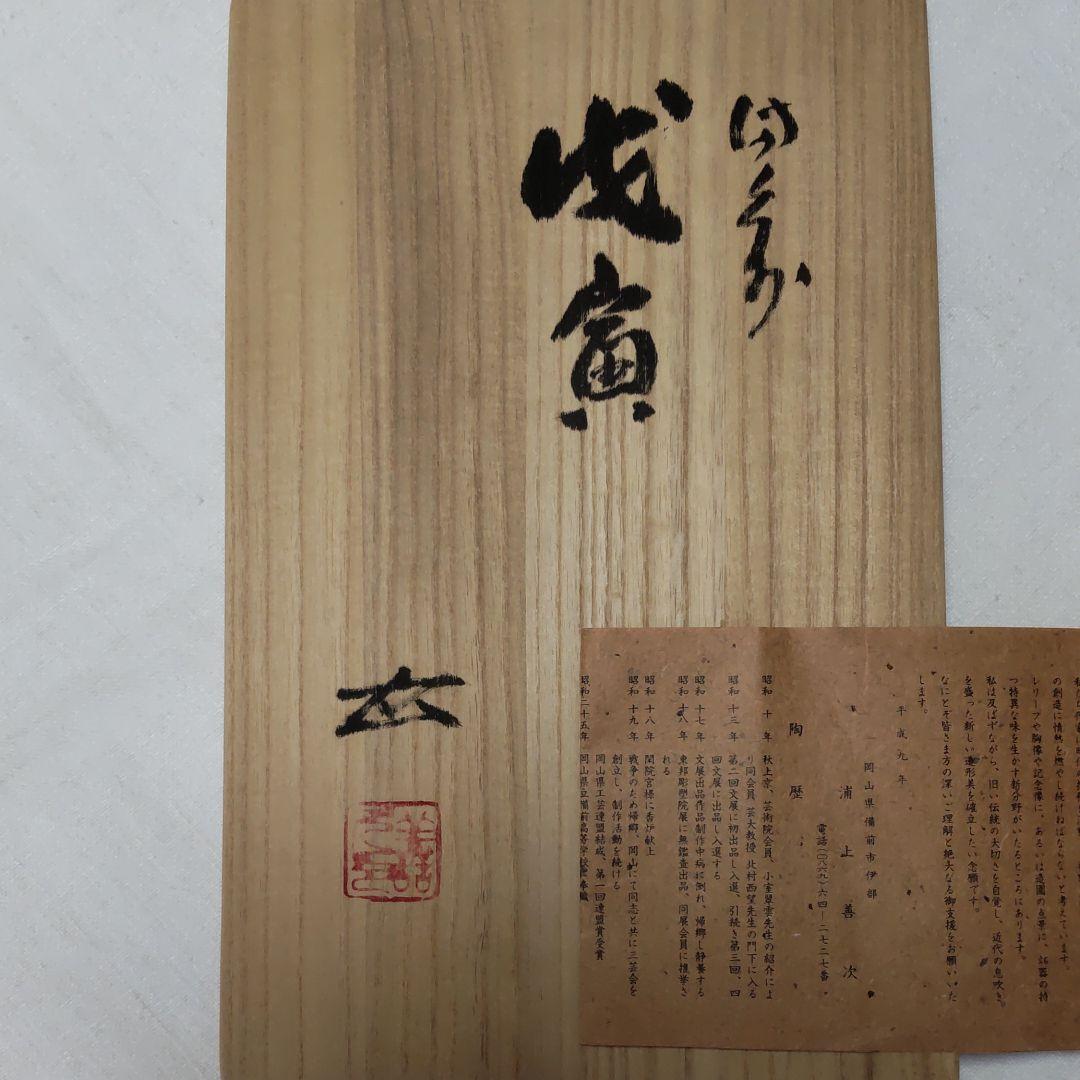 備前
戊寅
善
私は
の創造に情熱を燃やし続けねばならないと考えています。
レリーフや胸像や記念像に、あるいは造園の点景に、
つ特異な味を生かす新分野がいたるところにあります。
私は及ばずながら、旧い伝統の大切さを自覚し、近代の息吹き
を盛った新しい造形美を確立したい念願です。
なにとぞ皆さま方の深いご理解と絶大なる御支援をお願いいた
します。
平成九年
岡山県備前市伊部
浦上善次
電話(〇八六九)六四-二七二七番
陶歴
昭和十年 秋上京、芸術院会員、小室翠雲先生の紹介によ
り同会員 芸大教授 北村西望先生の門下に入る
昭和十三年 第二回文展に初出品し入選、引続き第三回、四
回文展に出品し入選する
昭和十七年 文展出品作品制作中病に倒れ、帰郷し静養する
昭和十八年 東邦彫塑院展に無鑑査出品、同展会員に推挙さ
れる
昭和十八年 閑院宮様に香炉献上
昭和十九年 戦争のため帰郷、岡山にて同志と共に三芸会を
創立し、制作活動を続ける
岡山県工芸連盟結成、第一回連盟賞受賞
昭和二十五年 岡山県立備前高等学校に奉職